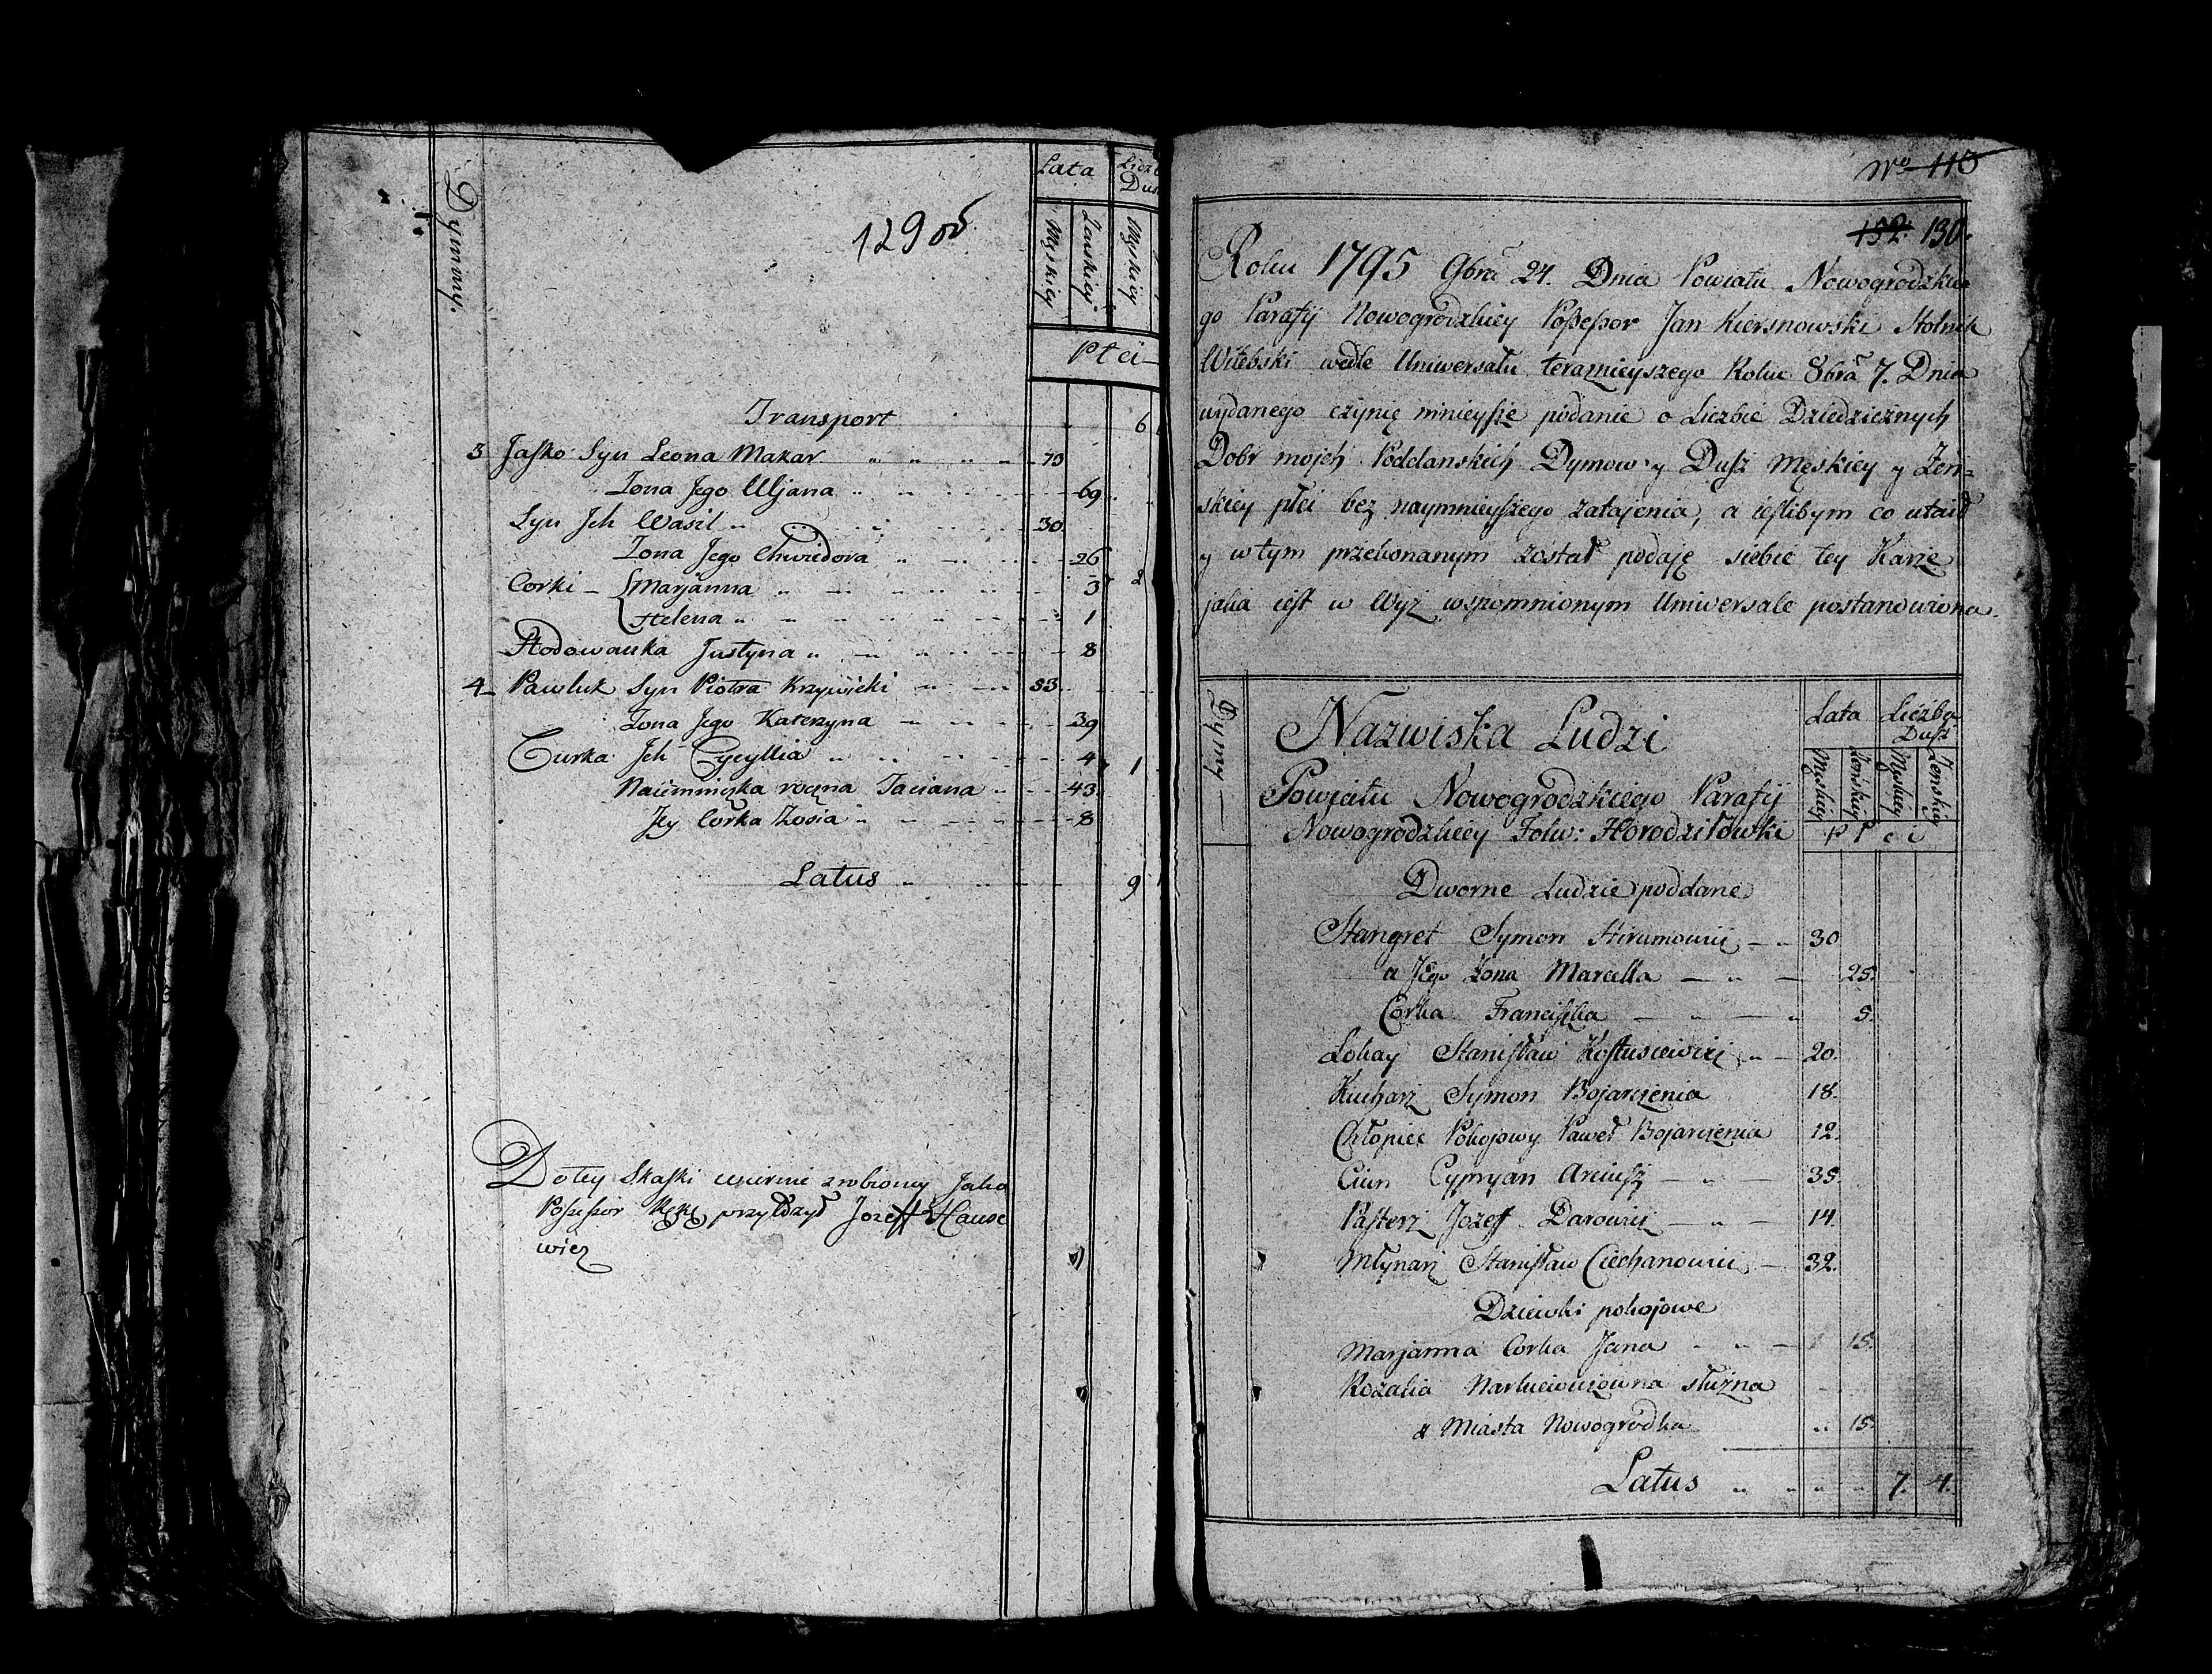 129 об.
Dymmy.
Lata
Męskiey
Zenskiey
Męskiey
Płci
Transport 6
3 Jaśko Syn Leona Makar 73
Zona Jego Uljana 69
Syn Jch Wasil 30
Zona Jego Chwiedora 26
Corki Marjanna 3 2
Helena 1
Hodowanka Justyna 8
4 Pawluk Syn Piotra Krzywicki 53
Zona Jego Katerzyna 39
Curka Jch Cycyllia 4 1
roczna Taciana 43
Jey Corka Zosia 8
Latus 9
Do tey Skaski zrobioney Jako
Possessor Rękę przyłożył Jozeff Hause
wicz
No 115
132. 130.
Roku 1795 9bra 24. Dnia Powiatu Nowogrodzkie
go Parafij Nowogrodzkiey Possessor Jan Kiersnowski Stolnik
Witebski wedle Uniwersału teraznieyszego Roku 8bra 7. Dnia
wydanego czynię ninieysze podanie o Liczbie Dziedzicznych
Dobr mojch Poddanskich Dymow y Dusz Męskiey y Zen=
skiey płci bez naymnieyszego zatajenia, a ieslibym co utaił
y wtym przekonanym został podaję siebie tey Karze
jaka iest w Wyż wspomnionym Uniwersale postanowiona.
Dymy
Nazwiska Ludzi
Lata Liczba
Dusz
Męskiey Zenskiey Męskiey Zenskiey
Powiatu Nowogrodzkiego Parafij
Nowogrodzkiey Folw: Horodziłowki Płci
Dworne Ludzie poddane
Stangret Symon Hirumowicz 30
a Jego Zona Marcella 25.
Corka Franciszka 5.
Lokay Stanisław Kostusiewicz 20.
Kucharz Symon Bojarczenia 18.
Chłopiec Pokojowy Paweł Bojarczenia 12.
Ciun Cypryan Arciusz 35.
Pasterz Jozeff Darowicz 14.
Młynarz Stanisław Ciechanowicz 32.
Dziewki pokojowe
Marjanna Corka Jana 15.
Rozalia Narkiewiczowna służna
z Miasta Nowogrodka 15.
Latus 7. 4.